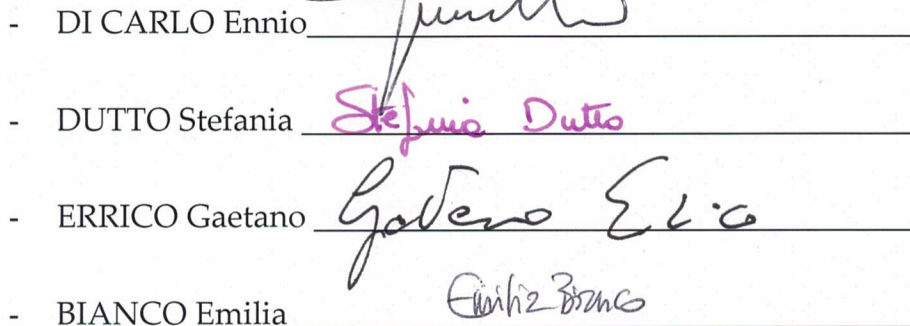 - DI CARLO Ennio
- DUTTO Stefania Stefania Dutto
- ERRICO Gaetano Gaetano Errico
- BIANCO Emilia Emilia Bianco